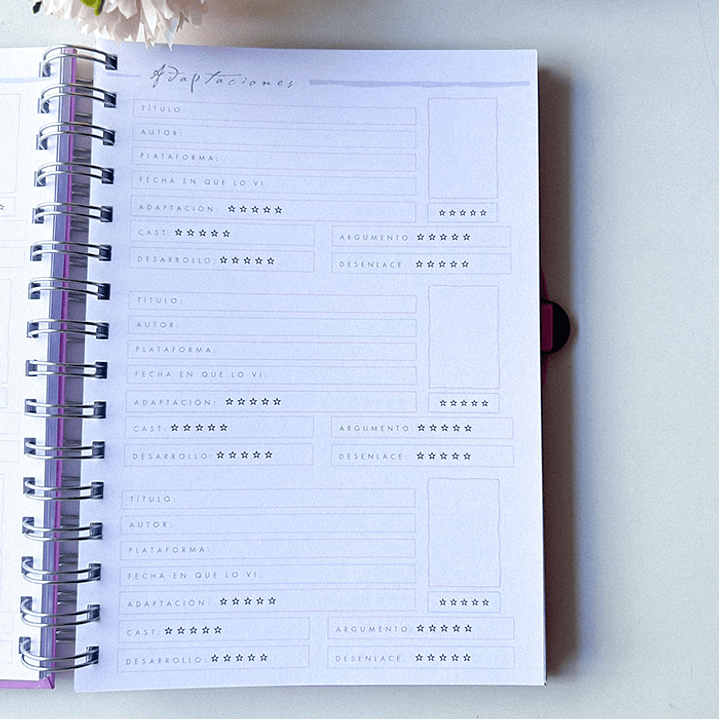 Adaptaciones
TÍTULO:
AUTOR:
PLATAFORMA:
FECHA EN QUE LO VI:
ADAPTACIÓN: ☆☆☆☆☆ ☆☆☆☆☆
CAST: ☆☆☆☆☆ ARGUMENTO: ☆☆☆☆☆
DESARROLLO: ☆☆☆☆☆ DESENLACE: ☆☆☆☆☆
TÍTULO:
AUTOR:
PLATAFORMA:
FECHA EN QUE LO VI:
ADAPTACIÓN: ☆☆☆☆☆ ☆☆☆☆☆
CAST: ☆☆☆☆☆ ARGUMENTO: ☆☆☆☆☆
DESARROLLO: ☆☆☆☆☆ DESENLACE: ☆☆☆☆☆
TÍTULO:
AUTOR:
PLATAFORMA:
FECHA EN QUE LO VI:
ADAPTACIÓN: ☆☆☆☆☆ ☆☆☆☆☆
CAST: ☆☆☆☆☆ ARGUMENTO: ☆☆☆☆☆
DESARROLLO: ☆☆☆☆☆ DESENLACE: ☆☆☆☆☆